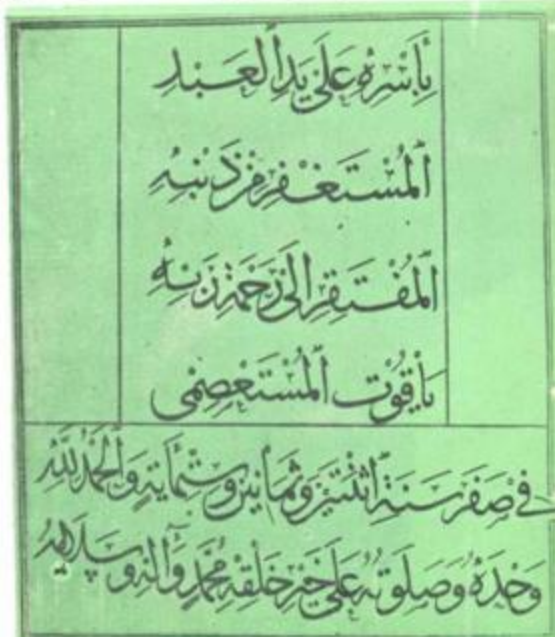 بِأَسْرِهِ عَلَى يَدِ الْعَبْدِ
الْمُسْتَغْفِرِ مِنْ ذَنْبِهِ
الْمُفْتَقِرِ إِلَى رَحْمَةِ رَبِّهِ
يَاقُوْت الْمُسْتَعْصِمِي
فِي صَفَر سَنَةِ اثْنَتَيْن وَثَمَانِيْن وَسِتْمِائَة وَالْحَمْدُ لِلَّهِ
وَحْدَهُ وَصَلَوتُهُ عَلَى خَيْرِ خَلْقِهِ مُحَمَّدٍ وَآلِهِ وَسَلَامُهُ